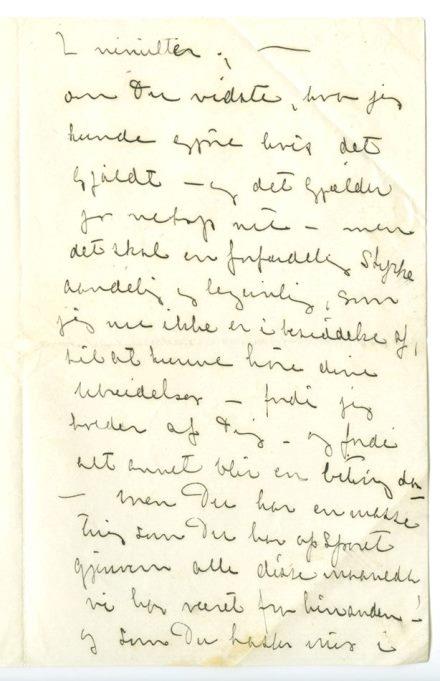 2 minutter; —
om Du vidste, hva jeg
kunde gjøre hvis det
gjaldt — og det gjælder
jo netop nu — men
det skal en forfærdelig Styrke
aandelig og legemlig, som
jeg nu ikke er i besiddelse af,
til at kunne høre dine
— fordi jeg
af Dig — og fordi
alt annet blir en
— men Du har en masse
ting som Du har opsparet
gjennem alle disse maaneder
vi har været fra hinanden!
og som Du kaster mig i